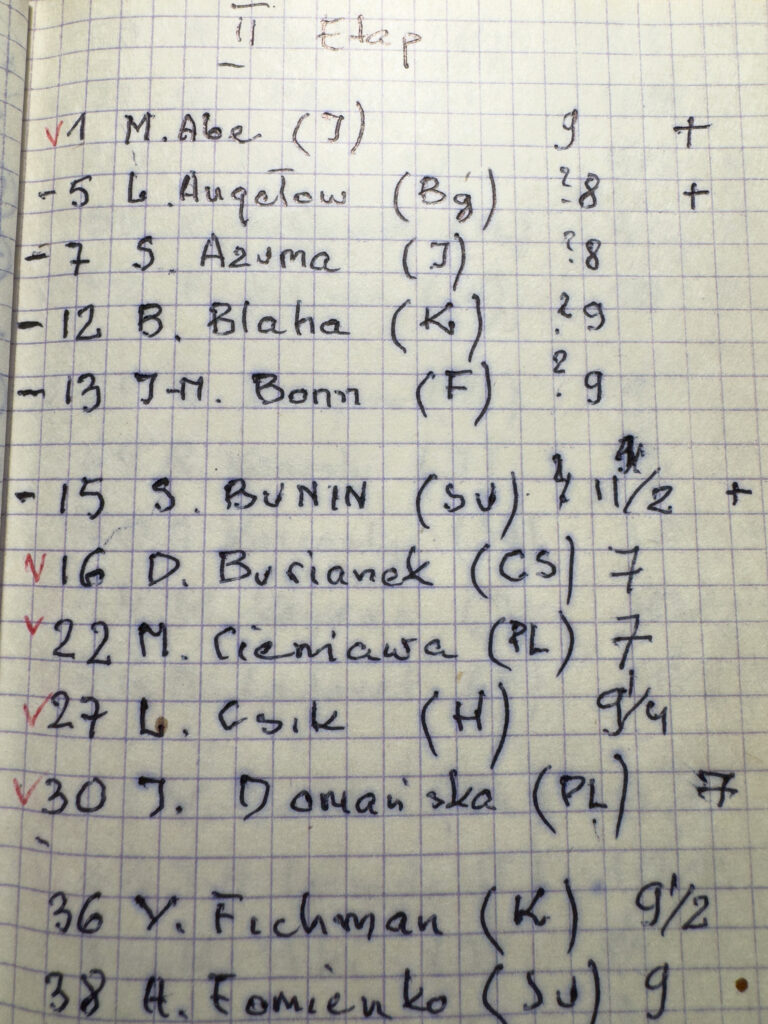 II Etap
√1 M. Abe (J) 9 +
-5 L. Angełow (Bg) ?8 +
-7 S. Azuma (J) ?8
-12 B. Blaha (K) ?9
-13 J-M. Bonn (F) ?9
-15 S. BUNIN (SU) 11/2 +
√16 D. Burianek (CS) 7
√22 M. Cieniawa (PL) 7
√27 L. Csik (H) 9 1/4
√30 J. Domańska (PL) 7
-
36 Y. Fichman (K) 9 1/2
38 A. Fomienko (SU) 9